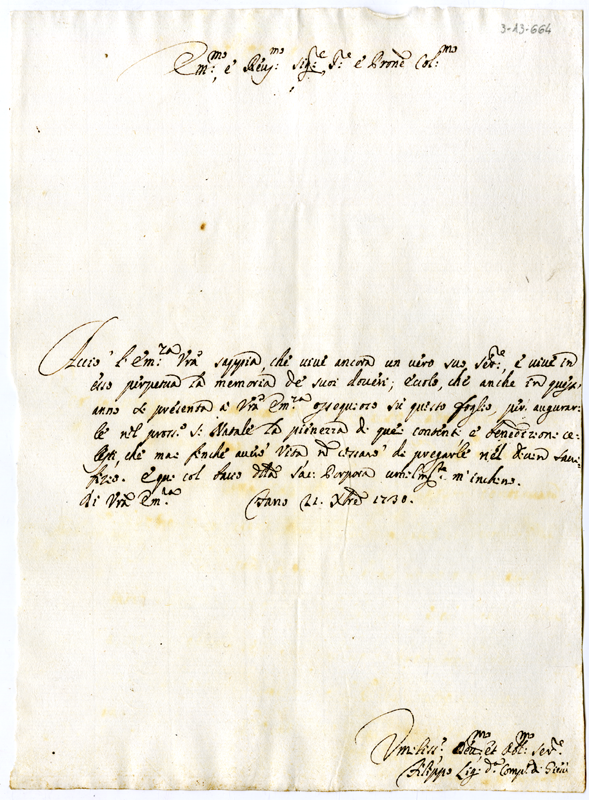 3-13-664
Em:mo, e Reu:mo Sig:re P:re e Prone Col:mo
Acciò l'Em:za Vra sappia, che viue ancora un vero suo Ser:re, e viue in
esso perpetua la memoria de suoi doueri; ecolo, che anche in quest'
anno si presenta a Vra Em:za ossequioso su questo foglio, per augurar-
le nel pross:o S: Natale la pienezza di quei contenti e benedizioni ce-
lesti, che mai finché auerò Vita nò cesserò di pregarle nel diuin Sacri-
fizio. E qui col bacio della sac: Porpora umilm:te m'inchino.
Di Vra Em:za Fano 21. Xbre 1730.
Umiliss:o Deu:mo et Obl:mo Ser:re
Filippo d:a Comp:a di Giesù